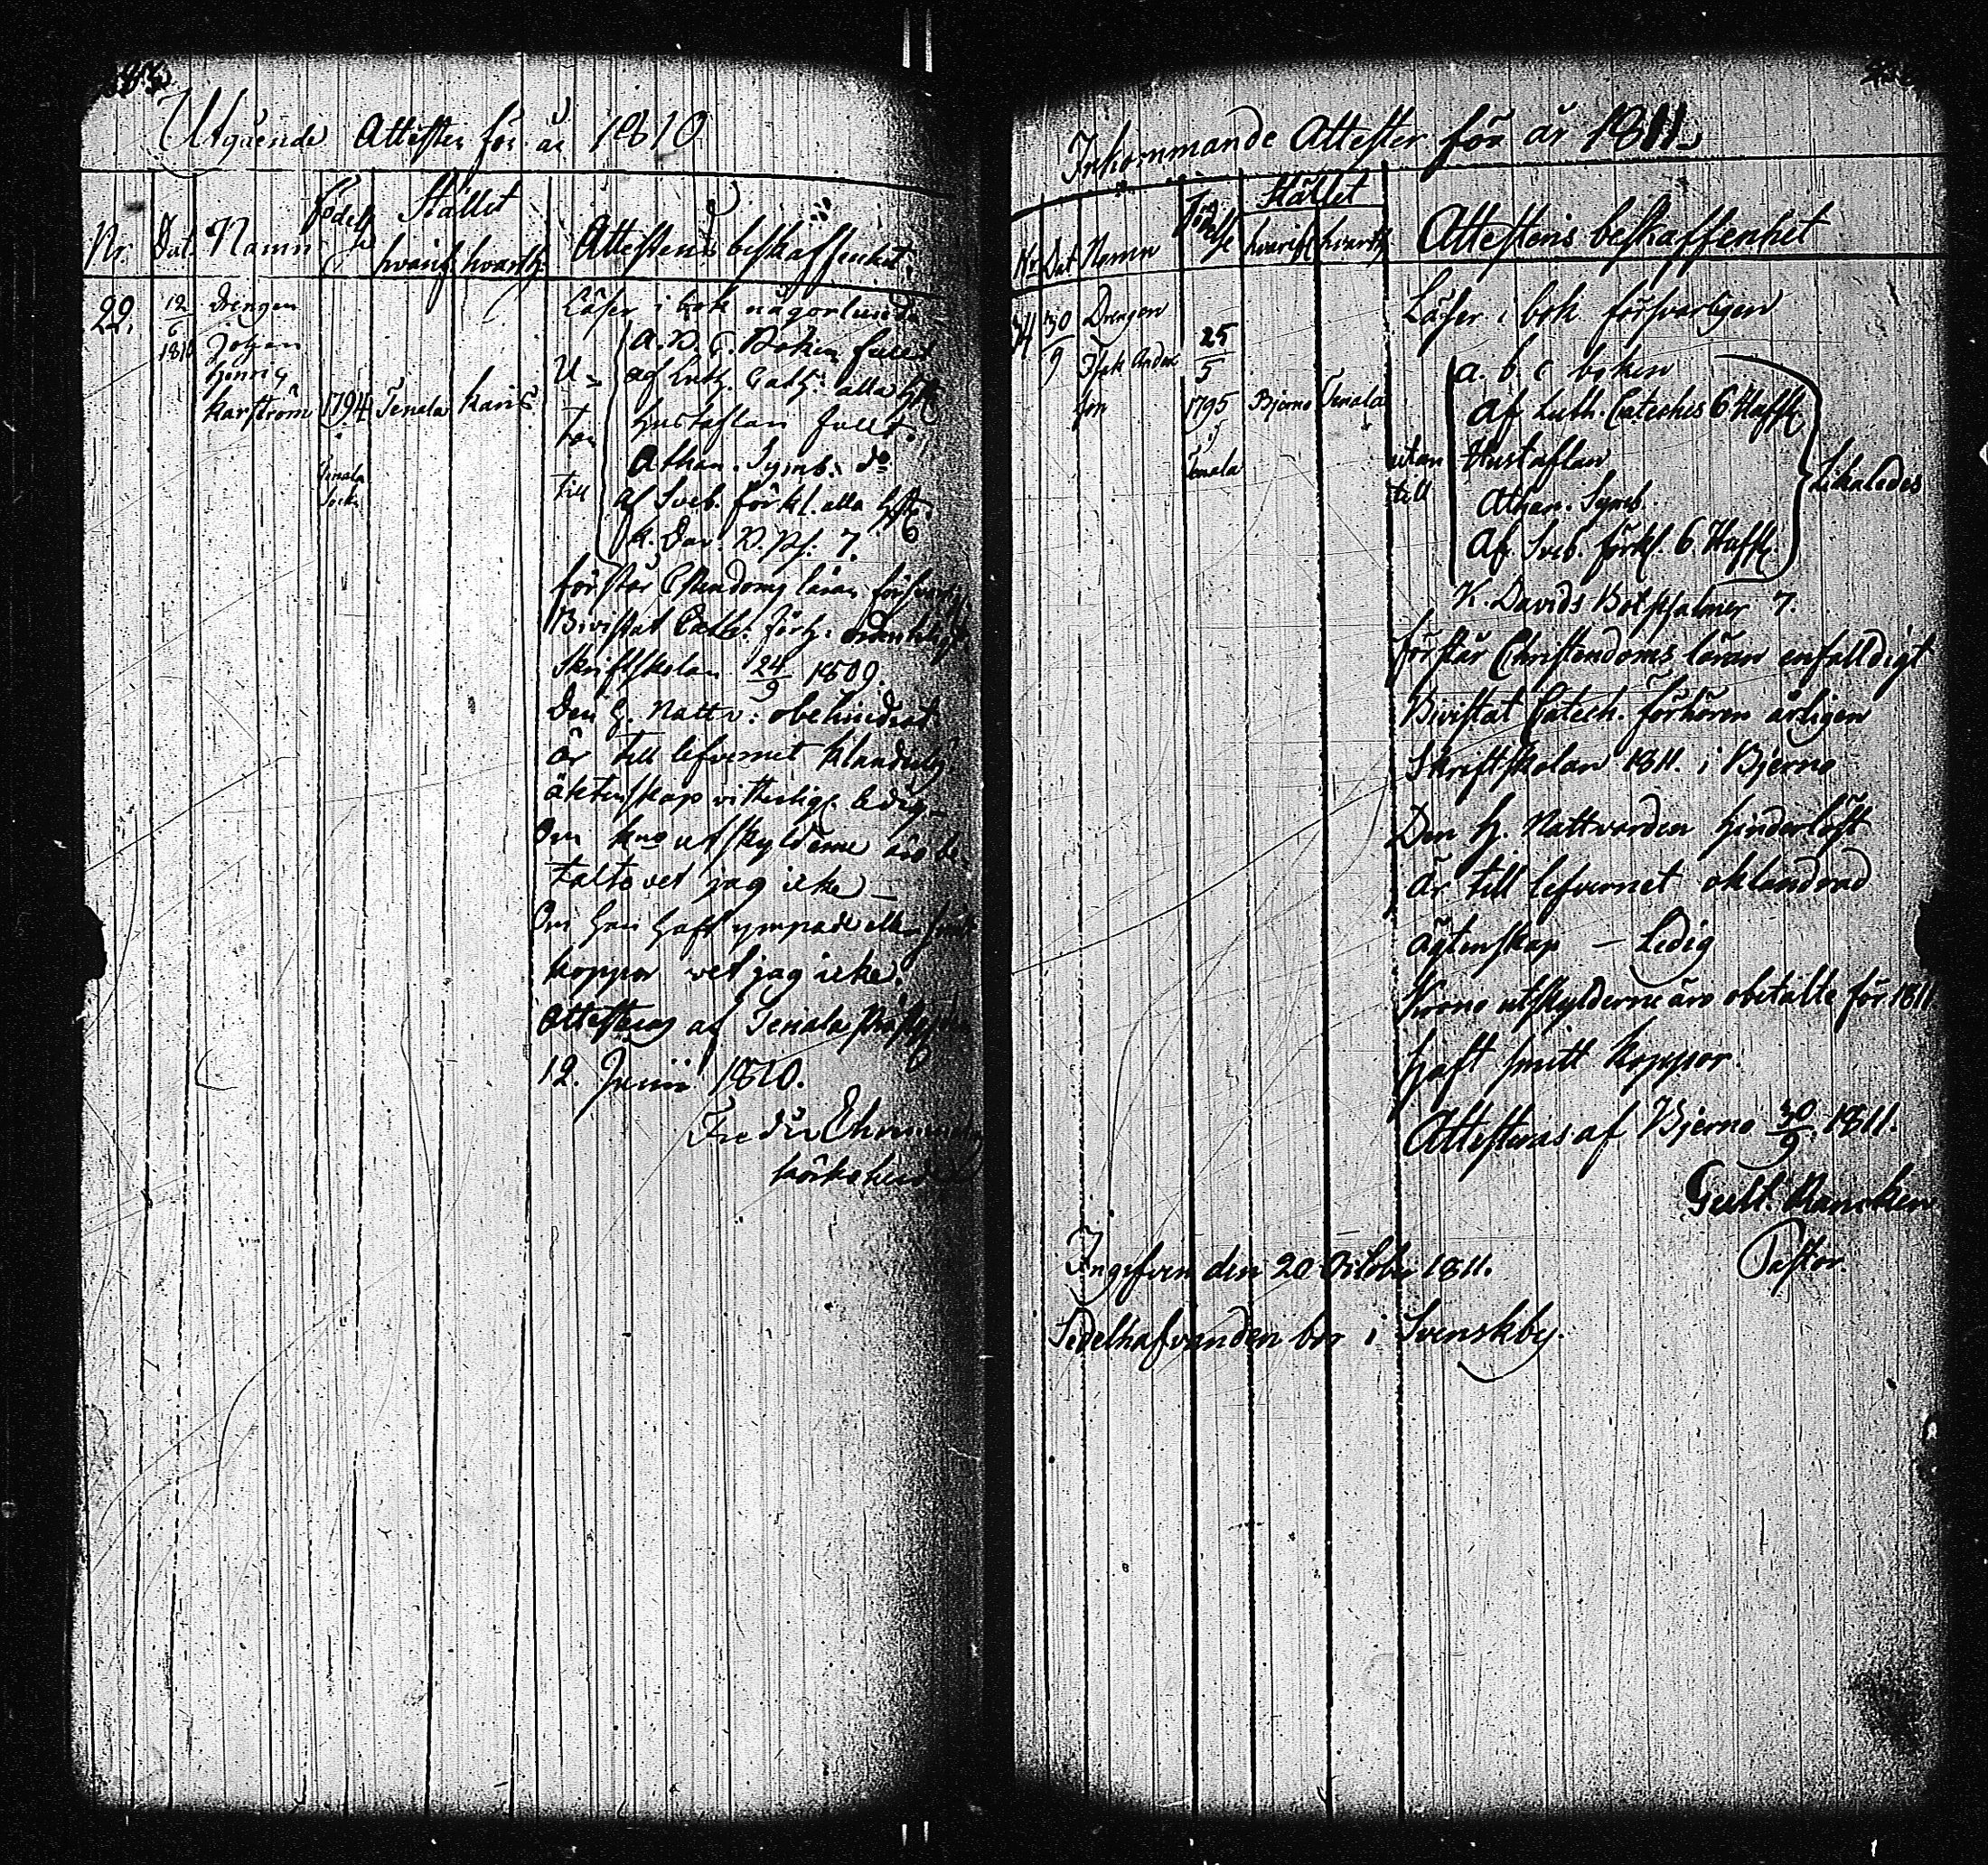 Utgående Attester för år 1810
Födelse Stället
Nr. Dat. Namn hvarif. hvarth. Attestens beskaffenhet.
22. 12/6 1810 Drengen Johan Henric Karström 1794 Tenala Sock: Tenala Karis
Läser i bok någorlunda
U-
tan
till
A. B. C. Boken fullt
af Luth. Cath: alla Hst
Hustaflan fullt.
Athan. Symb: do
af Sveb. förkl. alla Hst: 6
K. Dav. B. Ps. 7.
förstår Christendoms läran försvarl.
Bivistat Cath. förh: ordentligt
Skriftskolan 24/9 1809.
Den H. Nattv: obehindrat
är till lefvernet
äktenskap vitterligt ledig
Om utskylderne äro be-
talte vet jag icke —
Om han haft ympade eller
koppor vet jag icke.
Attesteras af Tenala
12. Junii 1810.
Kyrkoherde
Inkommande Attester för år 1811.
Stället
Nr. Dat Namn Födelse hvarif. hvarth. Attestens beskaffenhet
30/9 Drengen Isak Anders son 25/5 1795 i Tenala Bjerno Tenala
Läser i bok försvarligen
utan
till
a. b. c boken
Af Luth. Cateches 6 Haffst.
Hustaflan
Athan. Symb.
Af Sveb. förkl. 6 Haffst.
Likaledes
K. Davids Botpsalmer 7.
förstår Christendoms läran enfalldigt
Bivistat Catech. förhören årligen
Skriftskolan 1811. i Bjerno
Den H. Nattvarden hinderlöst
är till lefvernet oklandrad
ägtenskap — Ledig
Krono utskylderne äro obetalte för 1811
haft smitt koppor.
Attesteras af Bjerno 30/9. 1811.
Pastor.
Ingifven den 20 October 1811.
Sedelhafvanden bor i Svenskby.